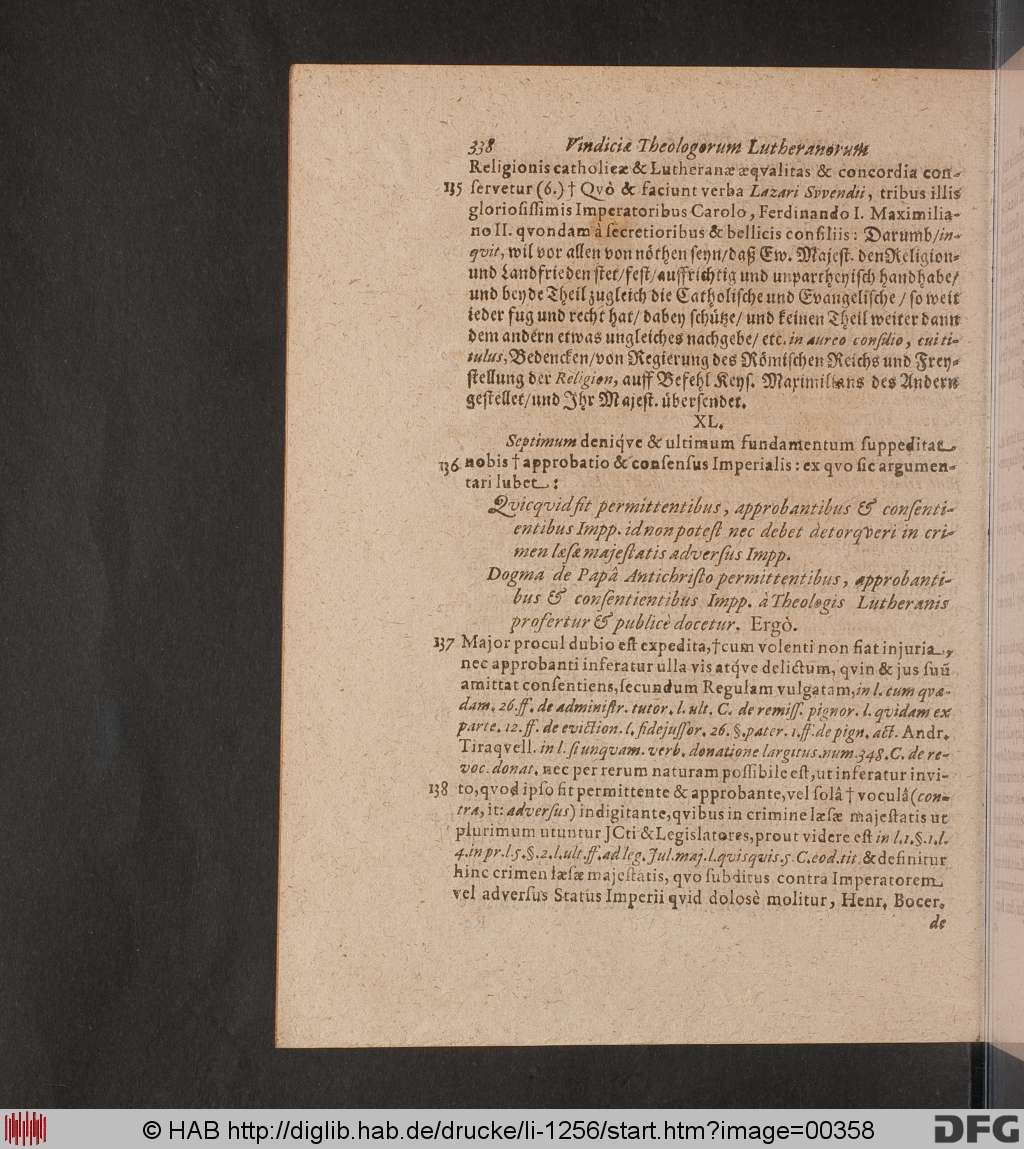 338 Vindiciæ Theologorum Lutheranorum
Religionis catholicæ & Lutheranæ æqvalitas & concordia con-
135 ſervetur (6.) † Qvò & faciunt verba Lazari Svvendii, tribus illis
glorioſiſſimis Imperatoribus Carolo, Ferdinando I. Maximilia-
no II. qvondam à ſecretioribus & bellicis conſiliis: Darumb/in-
qvit, wil vor allen von nöthen ſeyn/daß Ew. Majeſt. den Religion-
und Landfrieden ſtet/feſt/auffrichtig und unpartheyiſch handhabe/
und beyde Theil zugleich die Catholiſche und Evangeliſche / ſo weit
ieder fug und recht hat/ dabey ſchütze/ und keinen Theil weiter dann
dem andern etwas ungleiches nachgebe/ etc. in aureo conſilio, cui ti-
tulus, Bedencken/von Regierung des Römiſchen Reichs und Frey-
ſtellung der Religion, auff Befehl Keyſ. Maximilians des Andern
geſtellet/und Jhr Majeſt. überſendet.
XL.
Septimum deniqve & ultimum fundamentum ſuppeditat
136 nobis † approbatio & conſenſus Imperialis: ex qvo ſic argumen-
tari lubet:
Qvicqvid fit permittentibus, approbantibus & conſenti-
entibus Impp. id non poteſt nec debet detorqveri in cri-
men læſæ majeſtatis adverſus Impp.
Dogma de Papâ Antichriſto permittentibus, approbanti-
bus & conſentientibus Impp. à Theologis Lutheranis
profertur & publicè docetur. Ergò.
137 Major procul dubio eſt expedita, † cum volenti non fiat injuria,
nec approbanti inferatur ulla vis atqve delictum, qvin & jus ſuũ
amittat conſentiens, ſecundum Regulam vulgatam, in l. cum qvæ-
dam. 26. ff. de adminiſtr. tutor. l. ult. C. de remiſſ. pignor. l. qvidam ex
parte. 12. ff. de eviction. l. fidejuſſor. 26. §. pater. 1. ff. de pign. act. Andr.
Tiraqvell. in l. ſi unqvam. verb. donatione largitus. num. 348. C. de re-
voc. donat. nec per rerum naturam poſſibile eſt, ut inferatur invi-
138 to, qvod ipſo fit permittente & approbante, vel ſolâ † voculâ (con-
tra, it: adverſus) indigitante, qvibus in crimine læſæ majeſtatis ut
plurimum utuntur JCti & Legislatores, prout videre eſt in l. 1. §. 1. l.
4. in pr. l. 5. §. 2. l. ult. ff. ad leg. Jul. maj. l. qvisqvis. 5 C. eod. tit. & definitur
hinc crimen læſæ majeſtatis, qvo ſubditus contra Imperatorem
vel adverſus Status Imperii qvid dolosè molitur, Henr. Bocer.
de
© HAB http://diglib.hab.de/drucke/li-1256/start.htm?image=00358
DFG